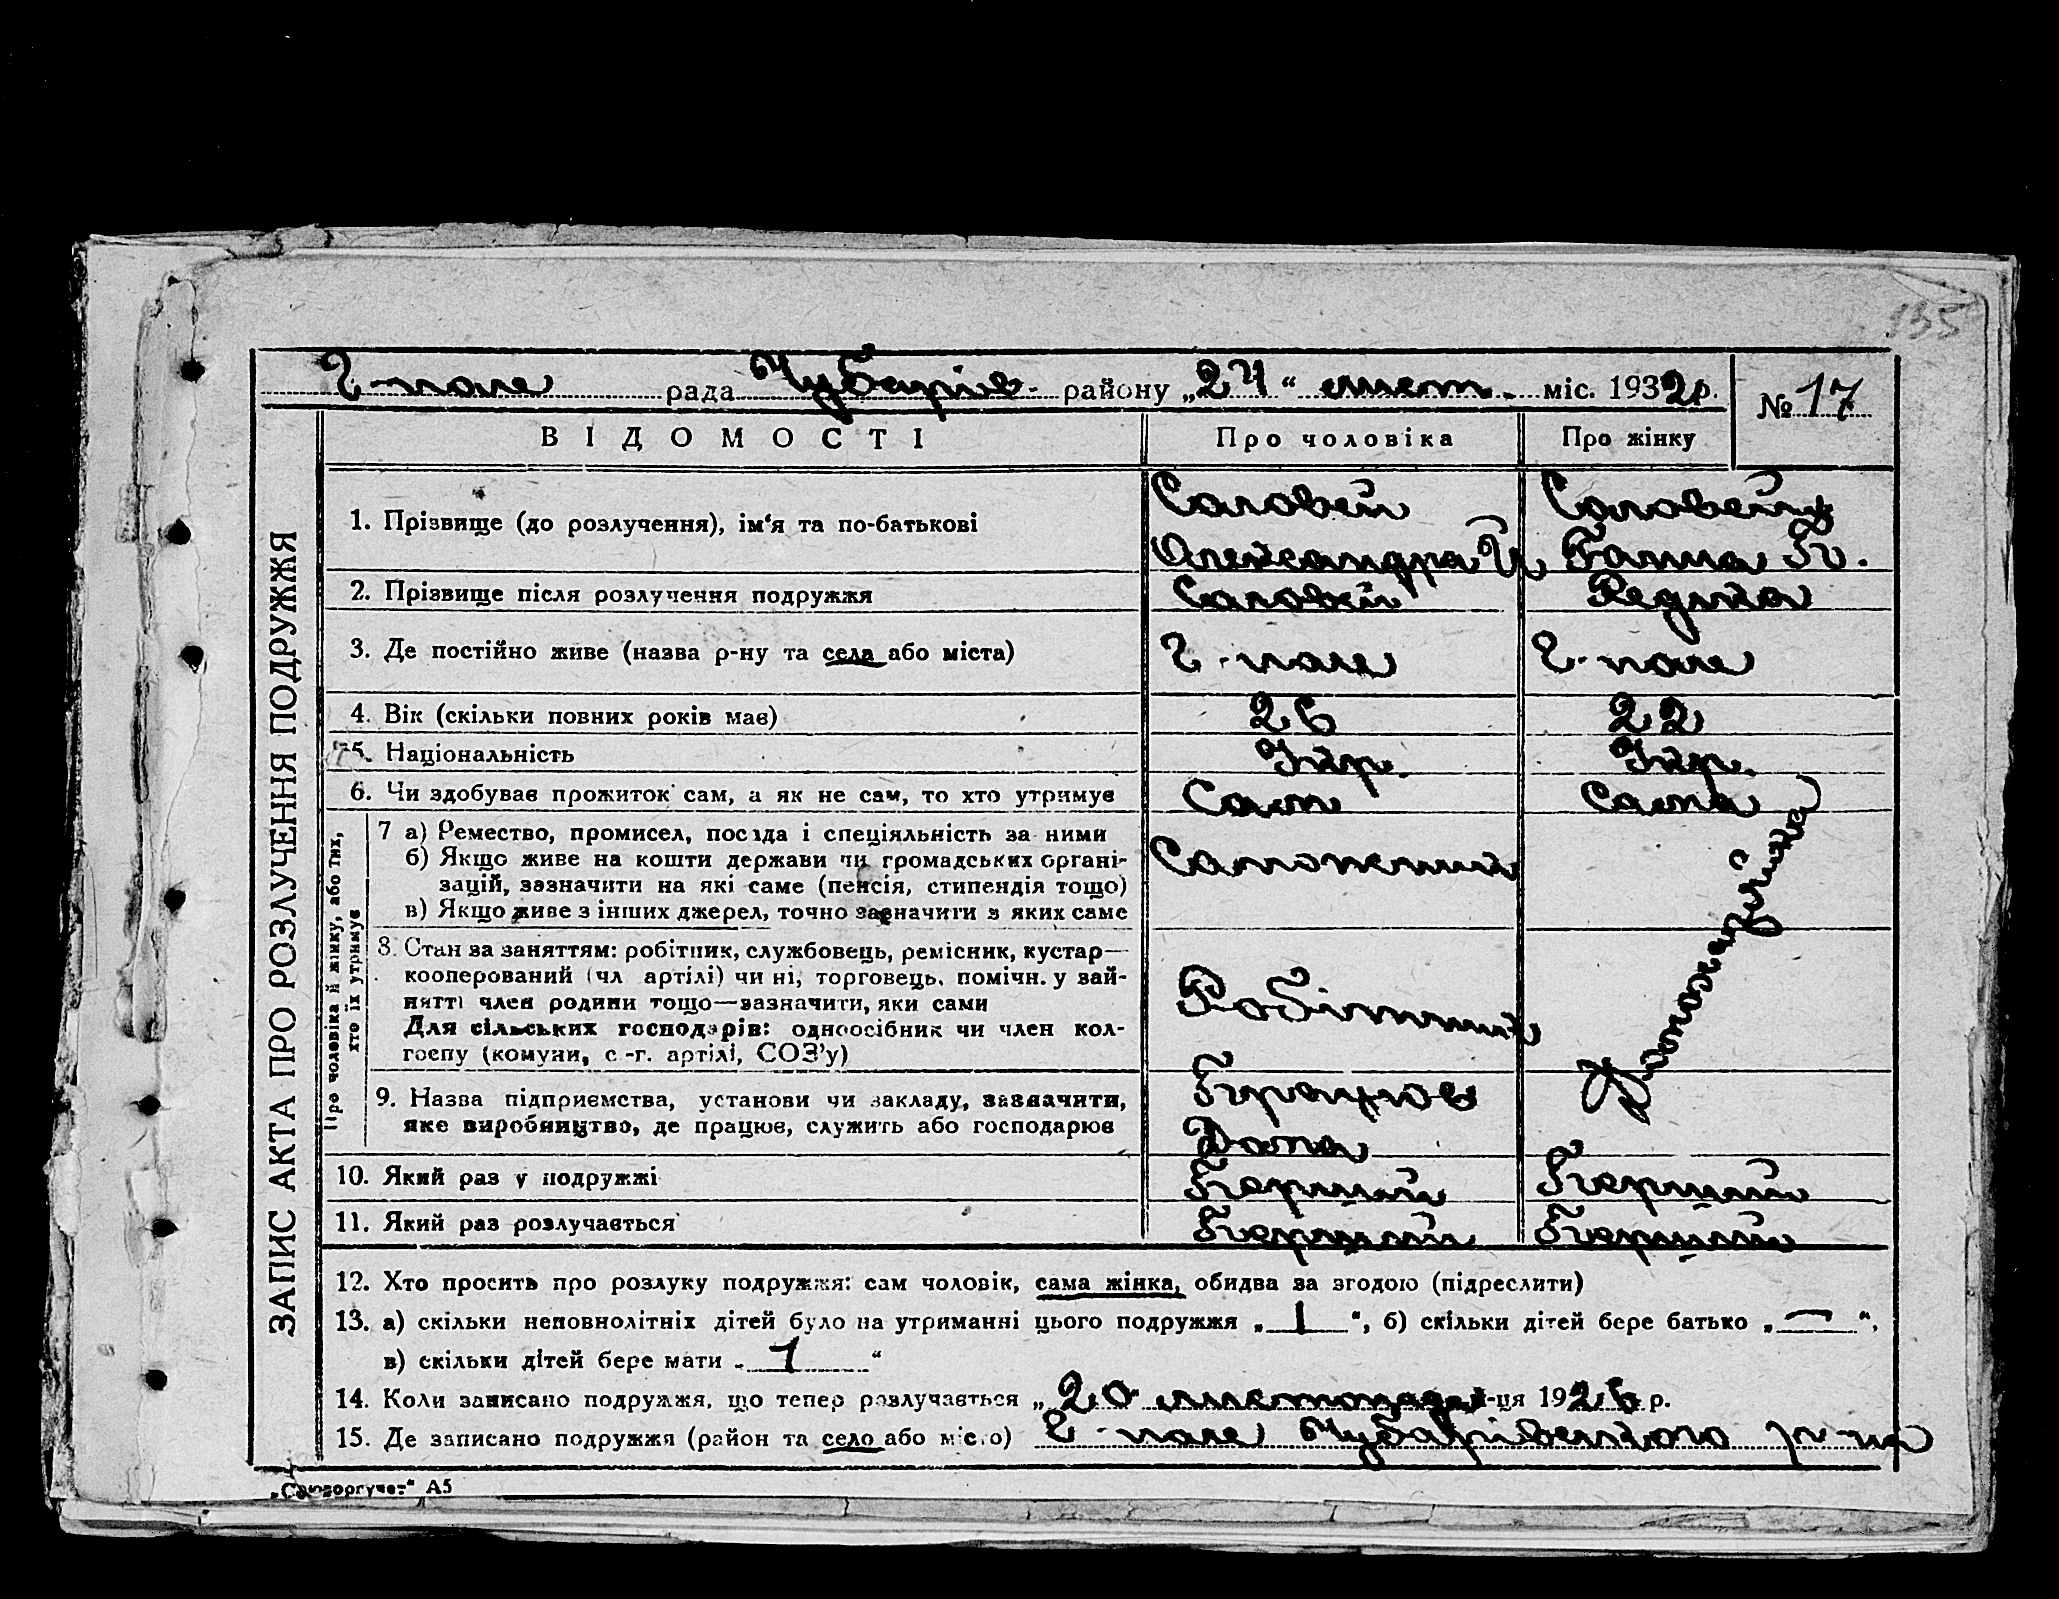 135
Г-поле рада Чубарів- району „24“ лист. міс. 1932 р.
№ 17
ВІДОМОСТІ
Про чоловіка
Про жінку
ЗАПИС АКТА ПРО РОЗЛУЧЕННЯ ПОДРУЖЖЯ
1. Прізвище (до розлучення), ім‘я та по-батькові
Соловей
Соловей
Олександра
Ганна
2. Прізвище після розлучення подружжя
Соловей
Редька
3. Де постійно живе (назва р-ну та села або міста)
Г-поле
Г-поле
4. Вік (скільки повних років має)
26
22
5. Національність
Укр.
Укр.
6. Чи здобуває прожиток сам, а як не сам, то хто утримує
Сам
Сама
Про чоловіка й жінку, або тих,
хто їх утримує
7 а) Ремество, промисел, посада і спеціяльність за ними
б) Якщо живе на кошти держави чи громадських органі-
зацій, зазначити на які саме (пенсія, стипендія тощо)
в) Якщо живе з інших джерел, точно зазначити з яких саме
8. Стан за заняттям: робітник, службовець, ремісник, кустар—
кооперований (чл артілі) чи ні, торговець, помічн. у зай-
нятті член родини тощо—зазначити, яки сами
Для сільських господарів: одноосібник чи член кол-
госпу (комуни, с-г. артілі, СОЗ’у)
Робітник
Домогосподарка
9. Назва підприємства, установи чи закладу, зазначити,
яке виробництво, де працює, служить або господарює
Працює
Дома
10. Який раз у подружжі
Перший
Перший
11. Який раз розлучається
Перший
Перший
12. Хто просить про розлуку подружжя: сам чоловік, сама жінка, обидва за згодою (підреслити)
13. а) скільки неповнолітніх дітей було на утриманні цього подружжя „1“, б) скільки дітей бере батько „—“,
в) скільки дітей бере мати „1“
14. Коли записано подружжя, що тепер розлучається „20 листопада -ця 1926 р.
15. Де записано подружжя (район та село або місто) Г-поле Чубарівського р-ну
„Союзоргучет“ А5